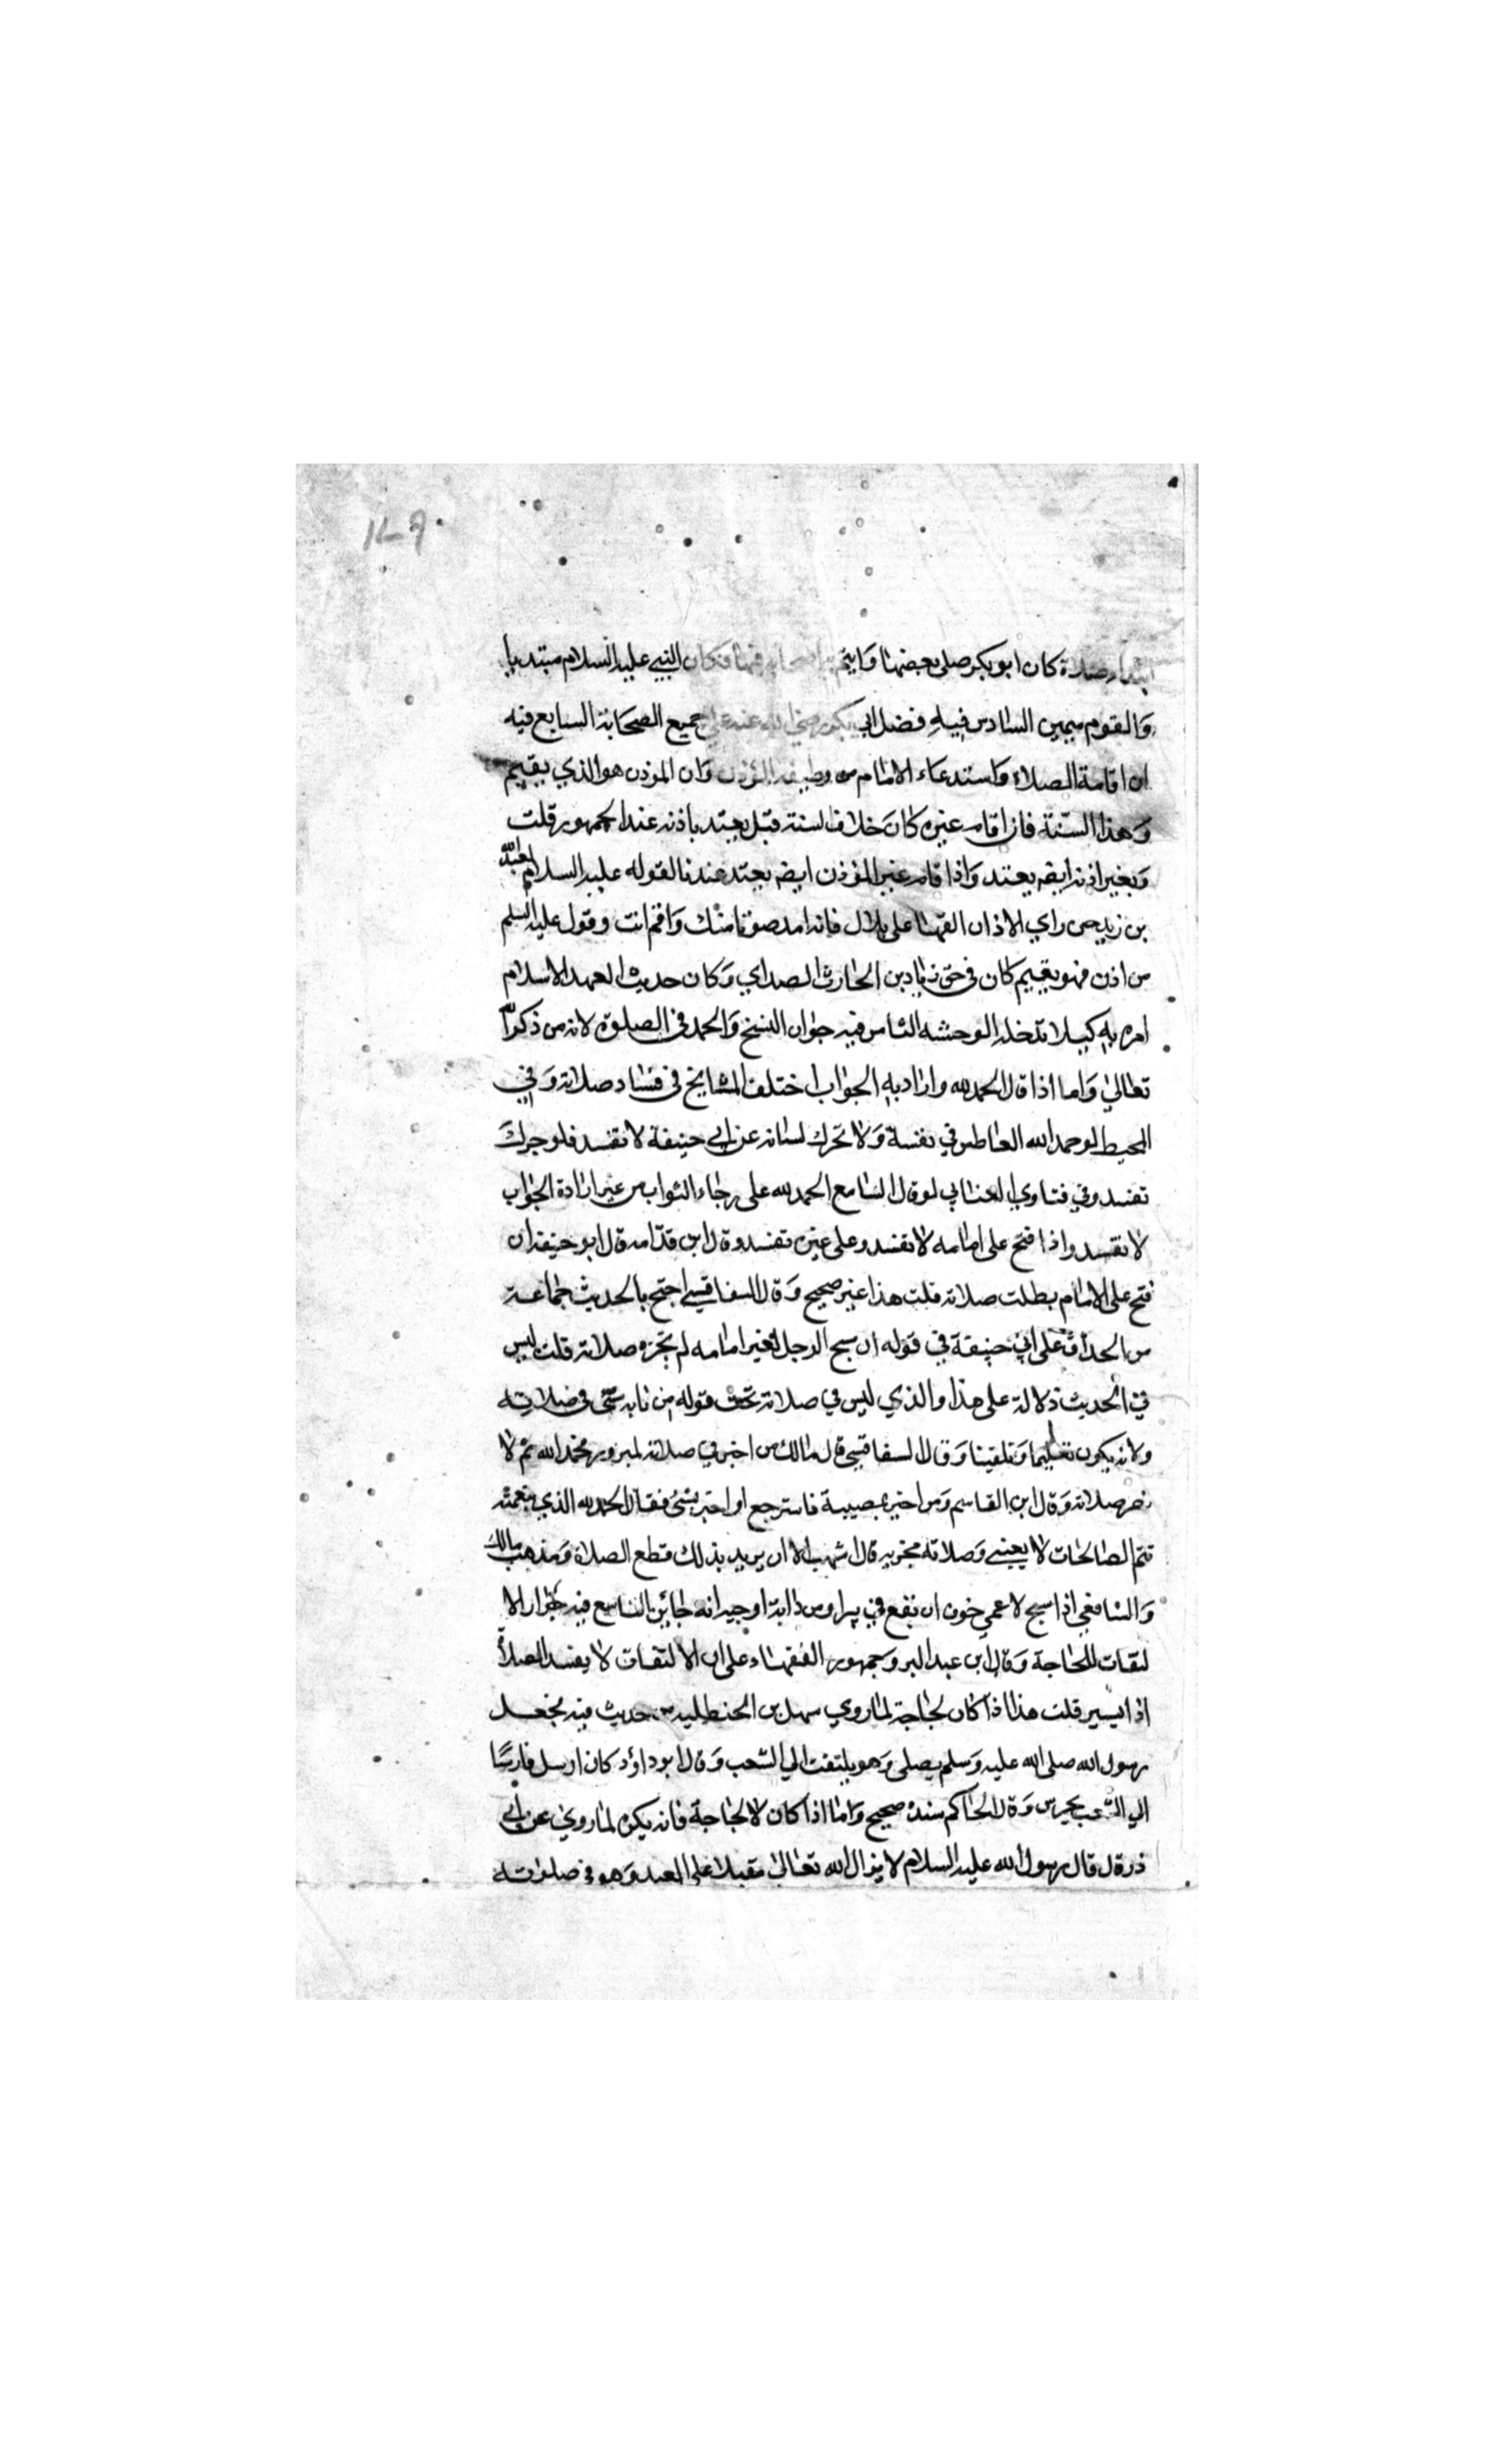 ابتداء صلاة كان ابو بكر صلى بعضها وايتم به اصحابه فيها فكان النبي عليه السلام مبتديا
والقوم ممن السادس فيه فضل ابي بكر رضي الله عنه علي جميع الصحابة السابع فيه
ان اقامة الصلاة واستدعاء الامام من وظيفة المؤذن وان الموذن هو الذي يقيم
وهذا السنة فان اقام غيره كان خلاف لسنة قيل يعتد باذنه عند الجمهور قلت
وبغير اذنه ايضه يعتد واذا قام غير المؤذن ايضه يعتد عندنا لقوله عليه السلام لعبد الله
بن زيد حين راي الاذان القها على بلال فانه امد صوتا منك واقم انت وقول عليه السلم
من اذن فهو يقيم كان في حق زياد بن الحارث الصداي وكان حديث العهد الاسلام
امره به كيلا تدخله الوحشه الثامن فيه جواز التسبح والحمد في الصلوة لانه من ذكر الله
تعالي واما اذا قال الحمد لله واراد به الجواب اختلف المشايخ في فساد صلاته وفي
المحيط لوحمد الله العاطس في نفسة ولا تحرك لسانه عن ابي حنيفة لا تفسد فلو حرك
تفسد وفي فتاوي العتابي لو قال السامع الحمد لله على رجاء الثواب من غير ارادة الجواب
لا تفسد واذا فتح على امامه لا تفسد وعلى غيره تفسد وقال ابن قدامه قال ابو حنيفة ان
فتح على الامام بطلت صلاته قلت هذا غير صحيح وقال السفاقسي احتج بالحديث جماعة
من الحذاق على ابي حنيفة في قوله ان سبح الرجل لغير امامه لم تجزه صلاته قلت ليس
في الحديث دلالة على هذا والذي ليس في صلاته تحت قوله من نابه شئ في صلاته
ولانه يكون تعليما وتلقينا وقال السفاقسي قال مالك من اخبر في صلاته لمبرور فحمد الله تم لا
نضر صلاته وقال ابن القاسم ومن اخبر بمصيبة فاسترجع او اخبر بشئ فقال الحمد لله الذي بنعمته
تتم الصالحات لا يعجبني وصلاته مجزيه قال اشهب الا ان يريد بذلك قطع الصلاة ومذهب مالك
والشافعي اذا سبح لاعمي خوف ان يقع في بير او من دابة او حيه انه جائز التاسع فيه جواز الا
لتفات للحاجة وقال ابن عبد البر وجمهور الفقهاء على ان الالتفات لا يفسد الصلاة
اذا يسير قلت هذا اذا كان لحاجة لما روي سهل بن الحنظليه من حديث فيه فجعل
رسول الله صلى الله عليه وسلم يصلى وهو يلتفت الي الشعب وقال ابو داؤد كان ارسل فارسا
الي الشعب يحرس وقال الحاكم سنده صحيح واما اذا كان لا لحاجة فانه يكره لما روي عن ابي
ذر قال قال رسول الله عليه السلام لا يزال الله تعالى مقبلا على العبد وهو في صلواته